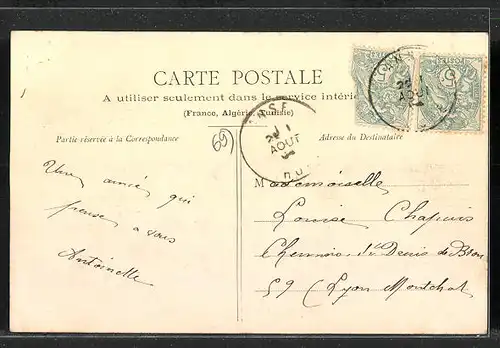 CARTE POSTALE
A utiliser seulement dans le service intérie
(France, Algérie, Tunisie)
Partie réservée à la Correspondance
Adresse du Destinataire
(69)
29 1
AOUT
Une amie qui
pense a vous
Antoinette
Mademoiselle
Louise Chapuis
Chemin St Denis de Bron
59 (Lyon Montchat